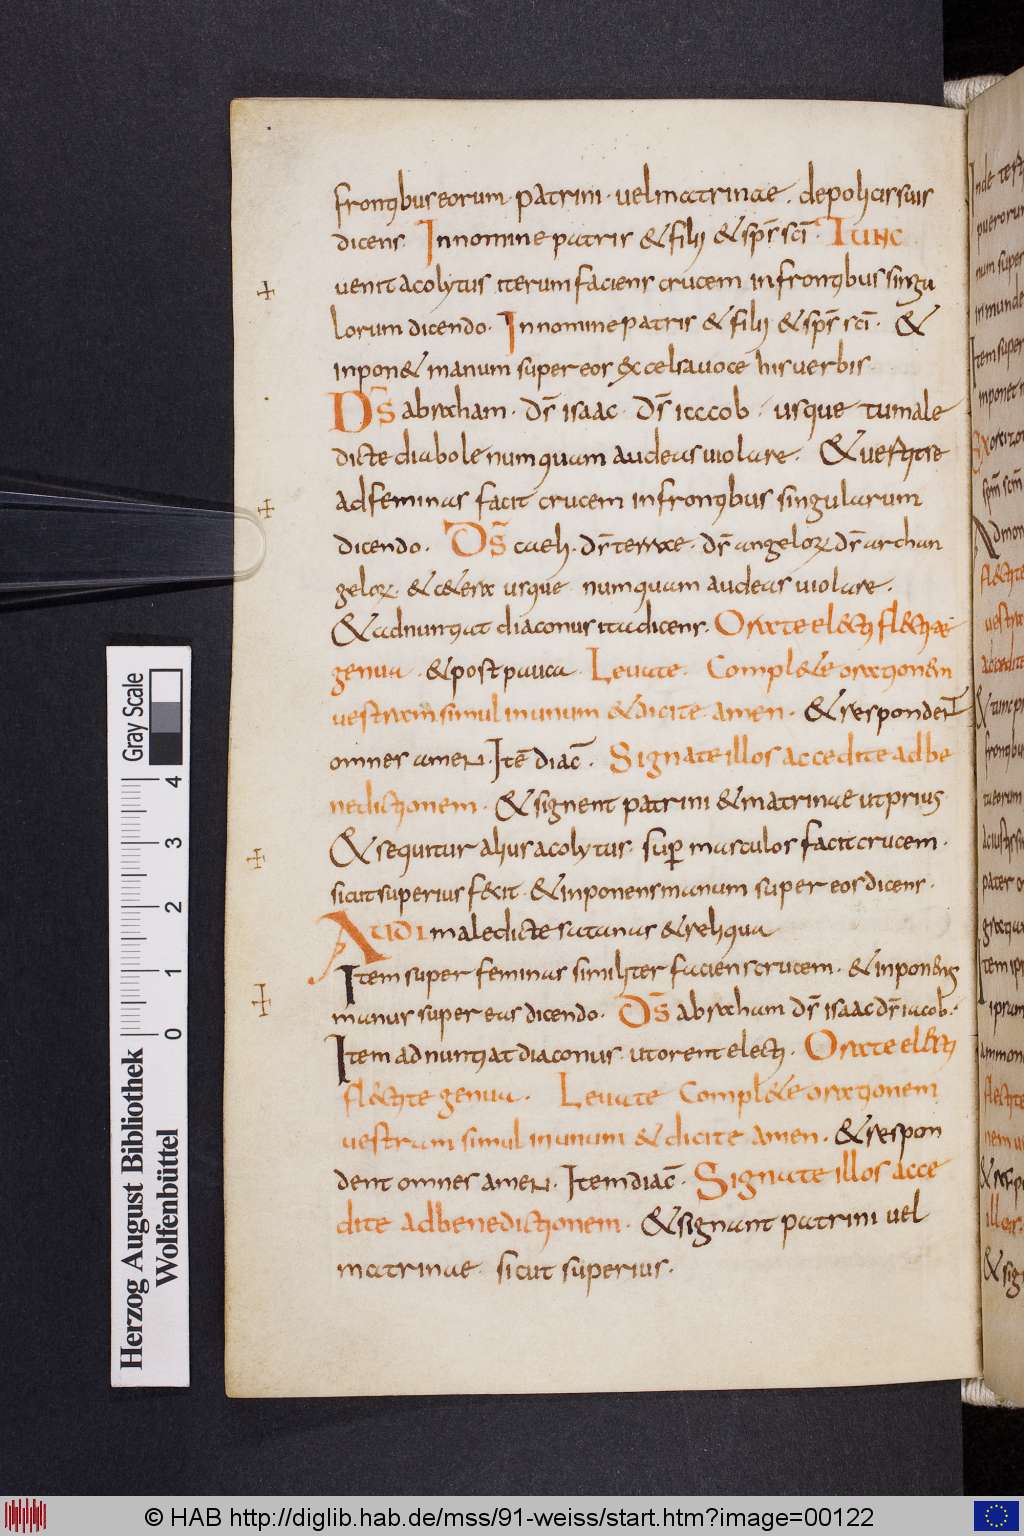 frontibus eorum patrini · vel matrinae · de policis suis
dicens · In nomine patris & filii & sp̄s sc̄i · Tunc
venit acolytus iterum faciens crucem in frontibus singu
lorum dicendo · In nomine patris & filii & sp̄s sc̄i · &
inpon& manum super eos excelsa voce his verbis ·
Ds̄ abraham · ds̄ isaac · ds̄ iacob · usque tu male
dicte diabole numquam audeas violare · & vestitie
ad feminas facit crucem in frontibus singularum
dicendo · Ds̄ caeli · ds̄ terrae · ds̄ angeloꝝ ds̄ archan
geloꝝ · & c&era usque numquam audeas violare ·
& adnuntiat diaconus ita dicens · Orate electi flectite
genua · & post pauca · Levate · Compl&e orationem
vestram simul in unum & dicite amen · & respondent
omnes amen · Itē diac̄ · Signate illos accedite ad be
nedictionem · & signent patrini & matrinae ut prius
& sequitur alius acolytus · sup masculos facit crucem ·
sicut superius fecit · & inponens manum super eos dicens ·
Audi maledicte satanas & reliqua
Item super feminas similiter faciens crucem · & inponens
manus super eas dicendo · Ds̄ abraham ds̄ isaac ds̄ iacob ·
Item adnuntiat diaconus · ut orent electi · Orate electi
flectite genua · Levate Compl&e orationem
vestram simul in unum & dicite amen · & respon
dent omnes amen · Item diac̄ · Signate illos acce
dite ad benedictionem · & signant patrini vel
matrinae sicut superius ·
Gray Scale
0 1 2 3 4
Herzog August Bibliothek
Wolfenbüttel
© HAB http://diglib.hab.de/mss/91-weiss/start.htm?image=00122